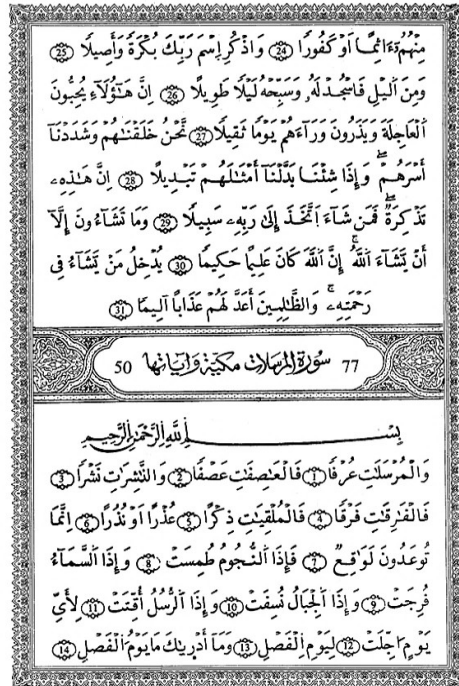 مِنْهُمُۥٓ ءَاثِمًا اَوْ كَفُورًا 24 وَاذْكُرِ اِسْمَ رَبِّكَ بُكْرَةً وَأَصِيلًا 25
وَمِنَ اَلَيْلِ فَاسْجُدْ لَهُۥ وَسَبِّحْهُ لَيْلًا طَوِيلًا 26 اِنَّ هَٰٓؤُلَآءِ يُحِبُّونَ
اَلْعَاجِلَةَ وَيَذَرُونَ وَرَآءَهُمْ يَوْمًا ثَقِيلًا 27 نَّحْنُ خَلَقْنَٰهُمْ وَشَدَدْنَآ
أَسْرَهُمْ وَإِذَا شِئْنَا بَدَّلْنَآ أَمْثَٰلَهُمْ تَبْدِيلًا 28 اِنَّ هَٰذِهِۦ
تَذْكِرَةٌ فَمَن شَآءَ اَ۪تَّخَذَ إِلَىٰ رَبِّهِۦ سَبِيلًا 29 وَمَا تَشَآءُونَ إِلَّآ
أَنْ يَّشَآءَ اَللَّهُ إِنَّ اَللَّهَ كَانَ عَلِيمًا حَكِيمًا 30 يُدْخِلُ مَنْ يَّشَآءُ فِى
رَحْمَتِهِۦ وَالظَّٰلِمِينَ أَعَدَّ لَهُمْ عَذَابًا اَلِيمًا 31
77 سورة المرسلات مكية وآياتها 50
بِسْمِ اِللَّهِ اِلرَّحْمَٰنِ اِلرَّحِيمِ
وَالْمُرْسَلَٰتِ عُرْفًا 1 فَالْعَٰصِفَٰتِ عَصْفًا 2 وَالنَّٰشِرَٰتِ نَشْرًا 3
فَالْفَٰرِقَٰتِ فَرْقًا 4 فَالْمُلْقِيَٰتِ ذِكْرًا 5 عُذْرًا اَوْ نُذُرًا 6 اِنَّمَا
تُوعَدُونَ لَوَٰقِعٌ 7 فَإِذَا اَلنُّجُومُ طُمِسَتْ 8 وَإِذَا اَلسَّمَآءُ
فُرِجَتْ 9 وَإِذَا اَلْجِبَالُ نُسِفَتْ 10 وَإِذَا اَلرُّسُلُ أُقِّتَتْ 11 لِأَىِّ
يَوْمٍ اُجِّلَتْ 12 لِيَوْمِ اِلْفَصْلِ 13 وَمَآ أَدْرَىٰكَ مَا يَوْمُ اُلْفَصْلِ 14